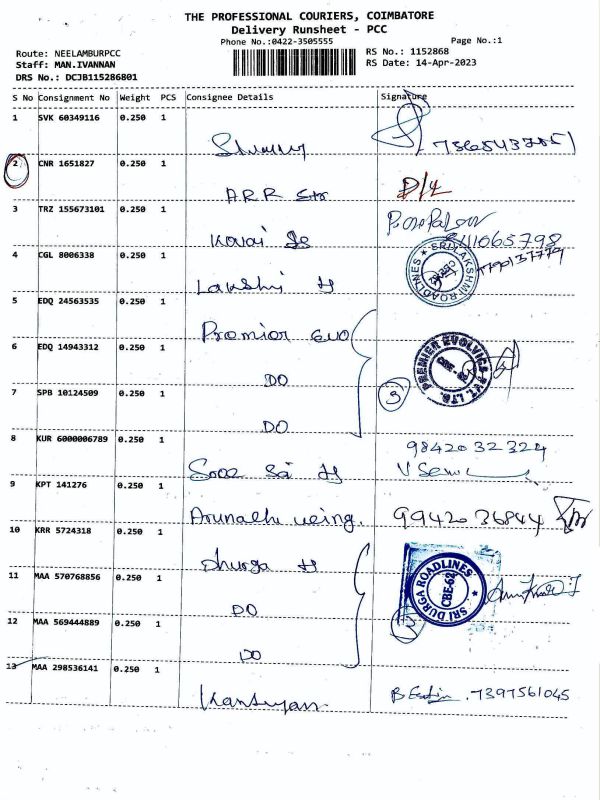 THE PROFESSIONAL COURIERS, COIMBATORE
Delivery Runsheet - PCC
Phone No.:0422-3505555 Page No.:1
Route: NEELAMBURPCC RS No.: 1152868
Staff: MAN.IVANNAN RS Date: 14-Apr-2023
DRS No.: DCJB115286801
S No Consignment No Weight PCS Consignee Details Signature
1 SVK 60349116 0.250 1
2 CNR 1651827 0.250 1
ARR
3 TRZ 155673101 0.250 1
Kovai
4 CGL 8006338 0.250 1
SRI LAKSHMI ROADLINES
Lakshi
5 EDQ 24563535 0.250 1
Premier evo
6 EDQ 14943312 0.250 1
PREMIER EVOLVICS PVT. LTD.
DO
7 SPB 10124509 0.250 1
3
DO
8 KUR 6000006789 0.250 1
98420 32 324
Sree Sai
9 KPT 141276 0.250 1
99420 36844
10 KRR 5724318 0.250 1
Dhurga
11 MAA 570768856 0.250 1
SRI DURGA ROADLINES
CBE-62
DO
12 MAA 569444889 0.250 1
3
DO
13 MAA 298536141 0.250 1
7397561045